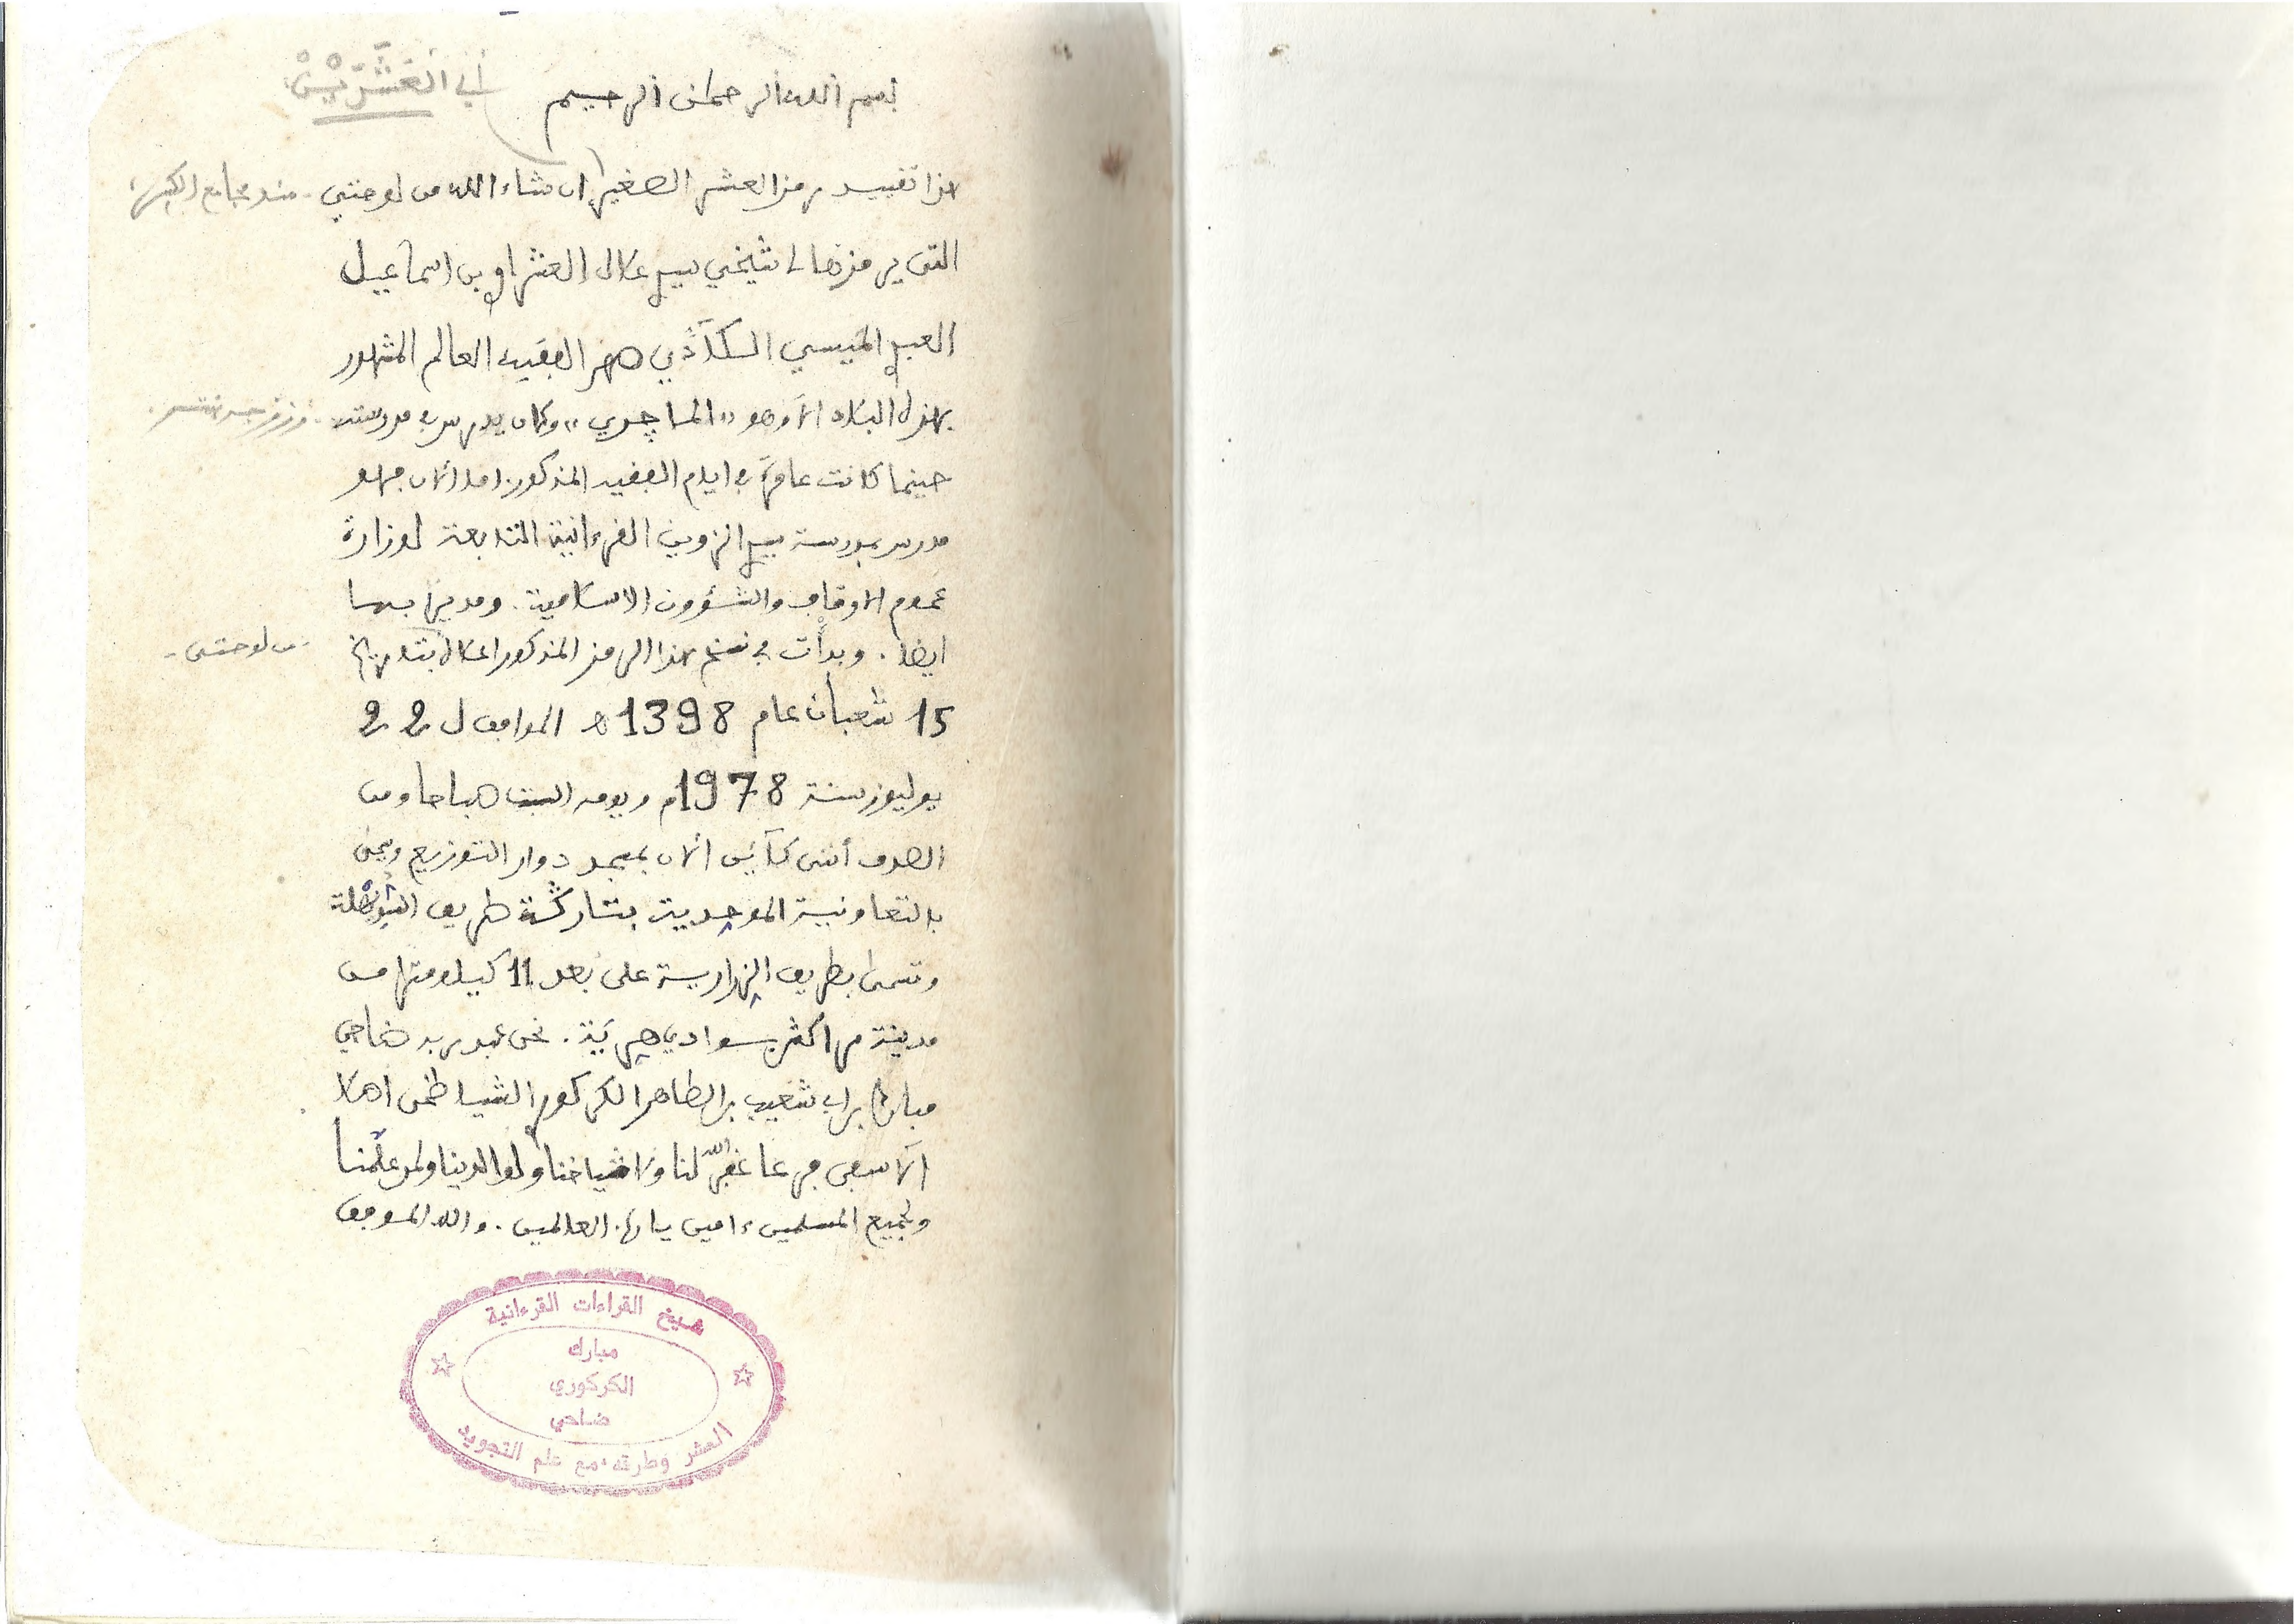 بسم الله الرحمان الرحيم
أي العَشَرَيْنْ
هذا تقييد رمز العشر الصغير ان شاء الله من لوحتي
التى يرمزها لى شيخي سيدي علال العشراوي بن اسماعيل
العبدي الميسي السكلاذي صهر الفقيه العالم المشهور
بهذه البلاد الا وهو "الماچدي" وكان يدرس في مدرسته
حينما كانت عامرة في ايام الفقيد المذكور اما الان فهو
مدرس بمدرسة سيدي الزوين القرءانية التابعة لوزارة
عموم الاوقاف والشؤون الاسلامية. ومديرا بها
ايضا. وبدأت في نسخ هذا الرمز المذكور اعلاه بتاريخ
من لوحتى
15 شعبان عام 1398 ه الموافق ل 22
يوليوز سنة 1978م ويومه السبت صباحا ومن
الصدف أننى كآئن الان بمسجد دوار التوزيع ويعنى
بالتعاونية الموحدية بتاركة طريق
وتسمى بطريق الزرارية على بعد 11 كيلومترا من
مدينة مراكش بسوادي. نحن عبد ربه ضاحي
مبارك بن ابى شعيب بن الطاهر الكركوري الشياظمى اصلا
الآسفى فرعا غفر الله لنا ولاشياخنا ولوالدينا ولمن علّمنا
ولجميع المسلمين ءامين يا رب العالمين. والله الموفق
شيخ القراءات القرءانية
مبارك
الكركوري
ضاحي
العشر وطرقه مع علم التجويد